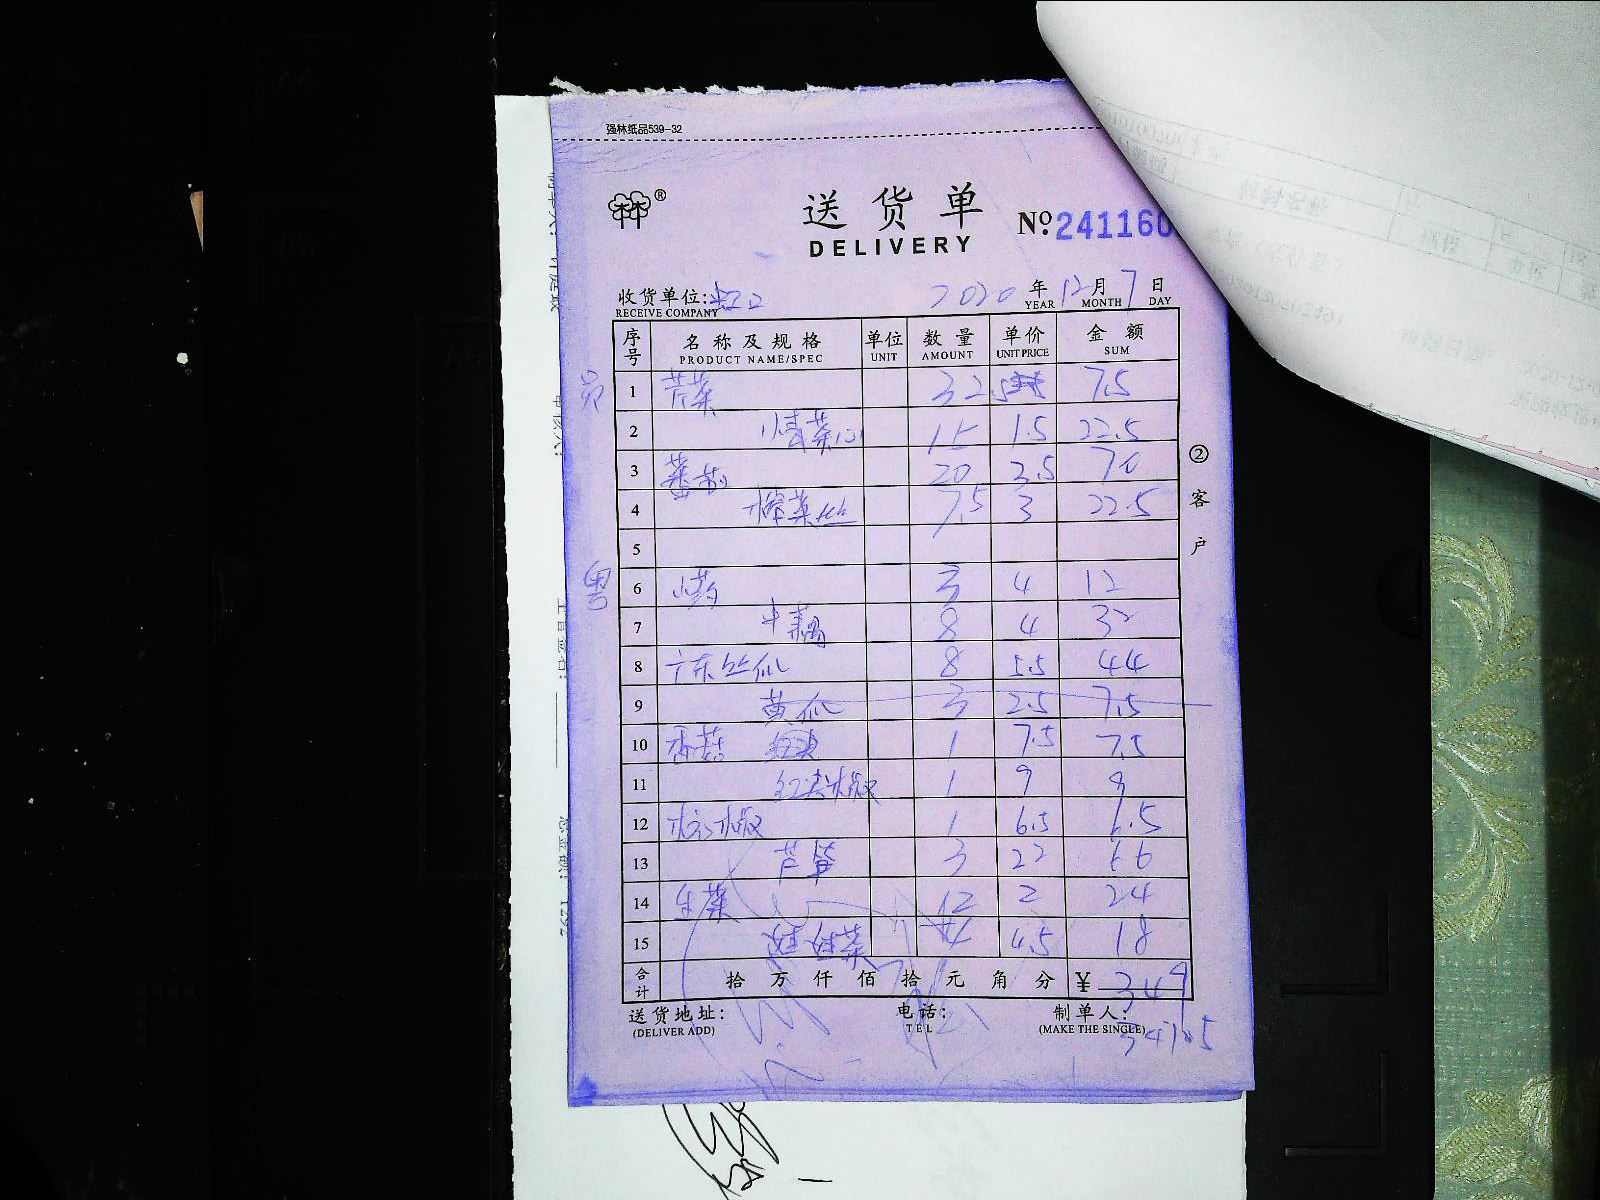 强林纸品539-32
送货单
DELIVERY
№:241160
收货单位:虹口 2020年12月7日
RECEIVE COMPANY YEAR MONTH DAY
序号 名称及规格 单位 数量 单价 金额
PRODUCT NAME/SPEC UNIT AMOUNT UNIT PRICE SUM
1 芹菜 3 2.5 7.5
2 小青菜心 15 1.5 22.5
3 番茄 20 3.5 70
4 榨菜丝 7.5 3 22.5
5
粤
6 山药 3 4 12
7 中藕 8 4 32
8 广东丝瓜 8 5.5 44
9 黄瓜 3 2.5 7.5
10 香菇 1 7.5 7.5
11 红尖椒 1 9 9
12 1 6.5 6.5
13 芦笋 3 22 66
14 生菜 12 2 24
15 娃娃菜 4 4.5 18
合计 拾万仟佰拾元角分 ¥ 349
送货地址: 电话: 制单人:
(DELIVER ADD) TEL (MAKE THE SINGLE)
②客户